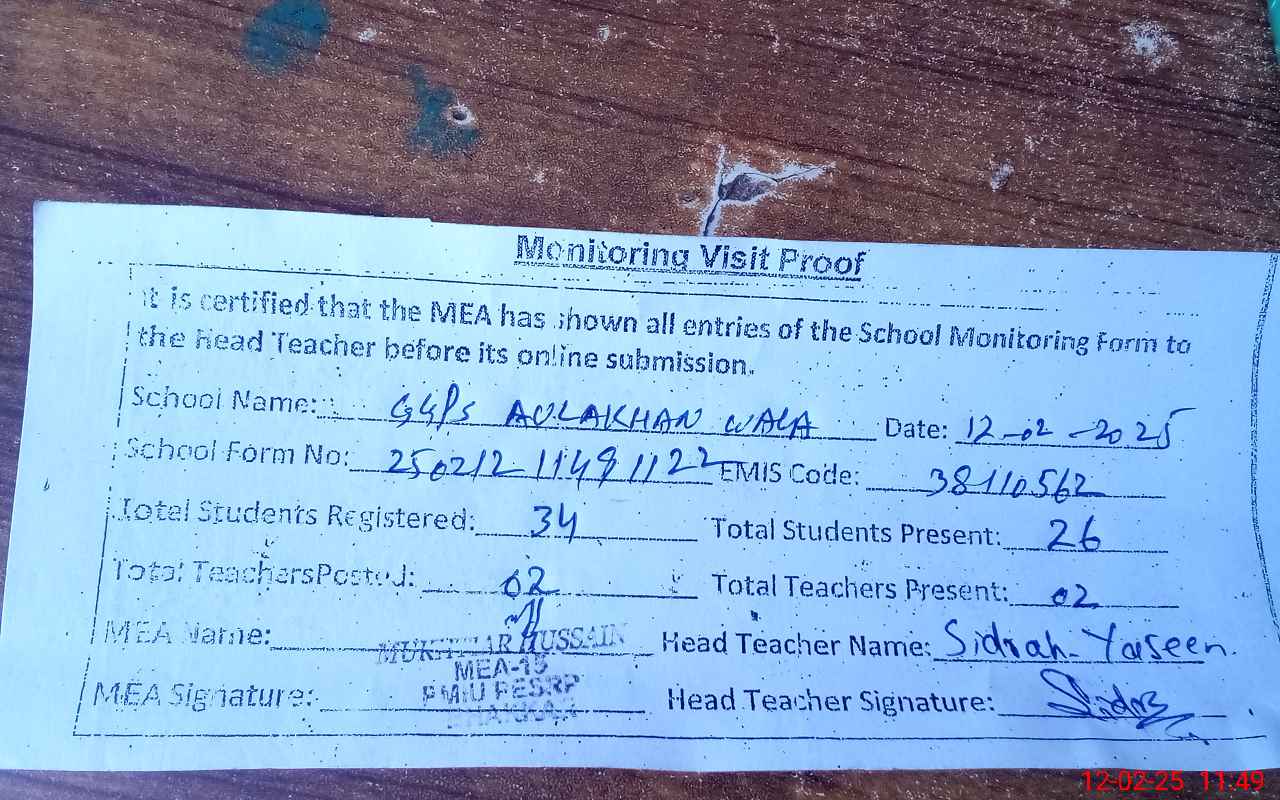 Monitoring Visit Proof
It is certified that the MEA has shown all entries of the School Monitoring Form to
the Head Teacher before its online submission.
School Name: GGPS AULAKHAN WALA Date: 12-02-2025
School Form No: EMIS Code: 38110562
Total Students Registered: 34 Total Students Present: 26
Total Teachers Posted: 02 Total Teachers Present: 02
MEA Name: MUKHTIAR HUSSAIN Head Teacher Name: Sidrah Yaseen.
MEA-15
MEA Signature: PMIU PESRP Head Teacher Signature:
BHAKKAR
12-02-25 11:49